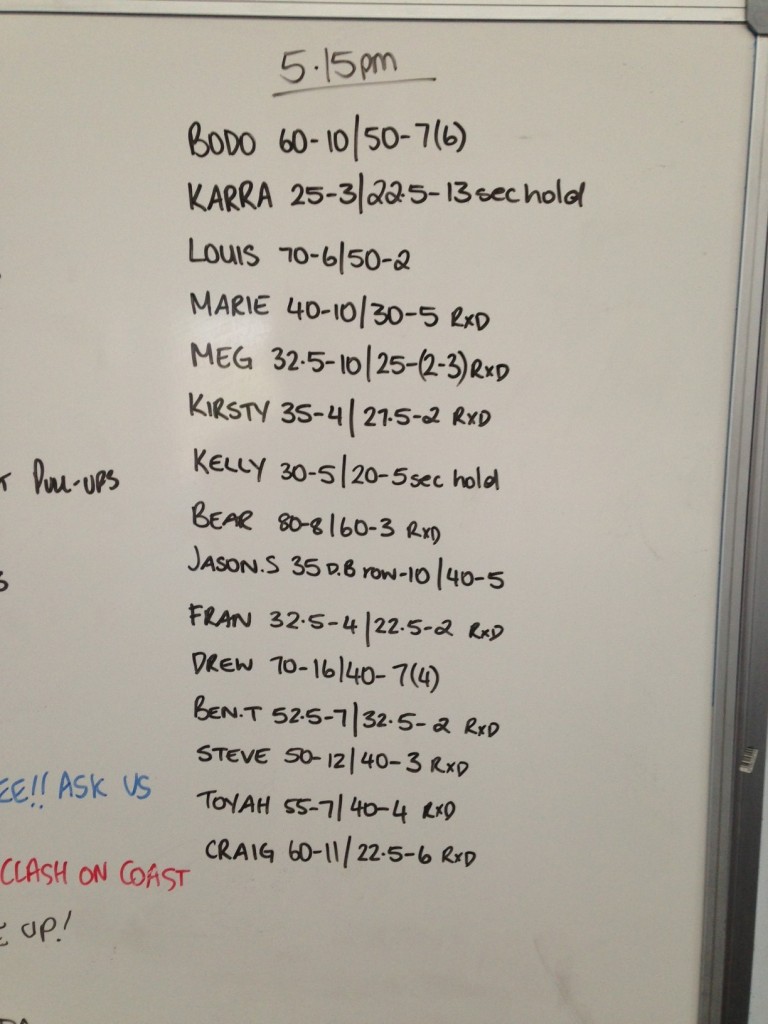 5.15pm
BODO 60-10/50-7(6)
KARRA 25-3/22.5-13 sec hold
LOUIS 70-6/50-2
MARIE 40-10/30-5 RxD
MEG 32.5-10/25-(2-3) RxD
KIRSTY 35-4/27.5-2 RxD
KELLY 30-5/20-5 sec hold
BEAR 80-8/60-3 RxD
JASON.S 35 D.B row-10/40-5
FRAN 32.5-4/22.5-2 RxD
DREW 70-16/40-7(4)
BEN.T 52.5-7/32.5-2 RxD
STEVE 50-12/40-3 RxD
TOYAH 55-7/40-4 RxD
CRAIG 60-11/22.5-6 RxD
PULL-UPS
EE!! ASK US
CLASH ON COAST
UP!